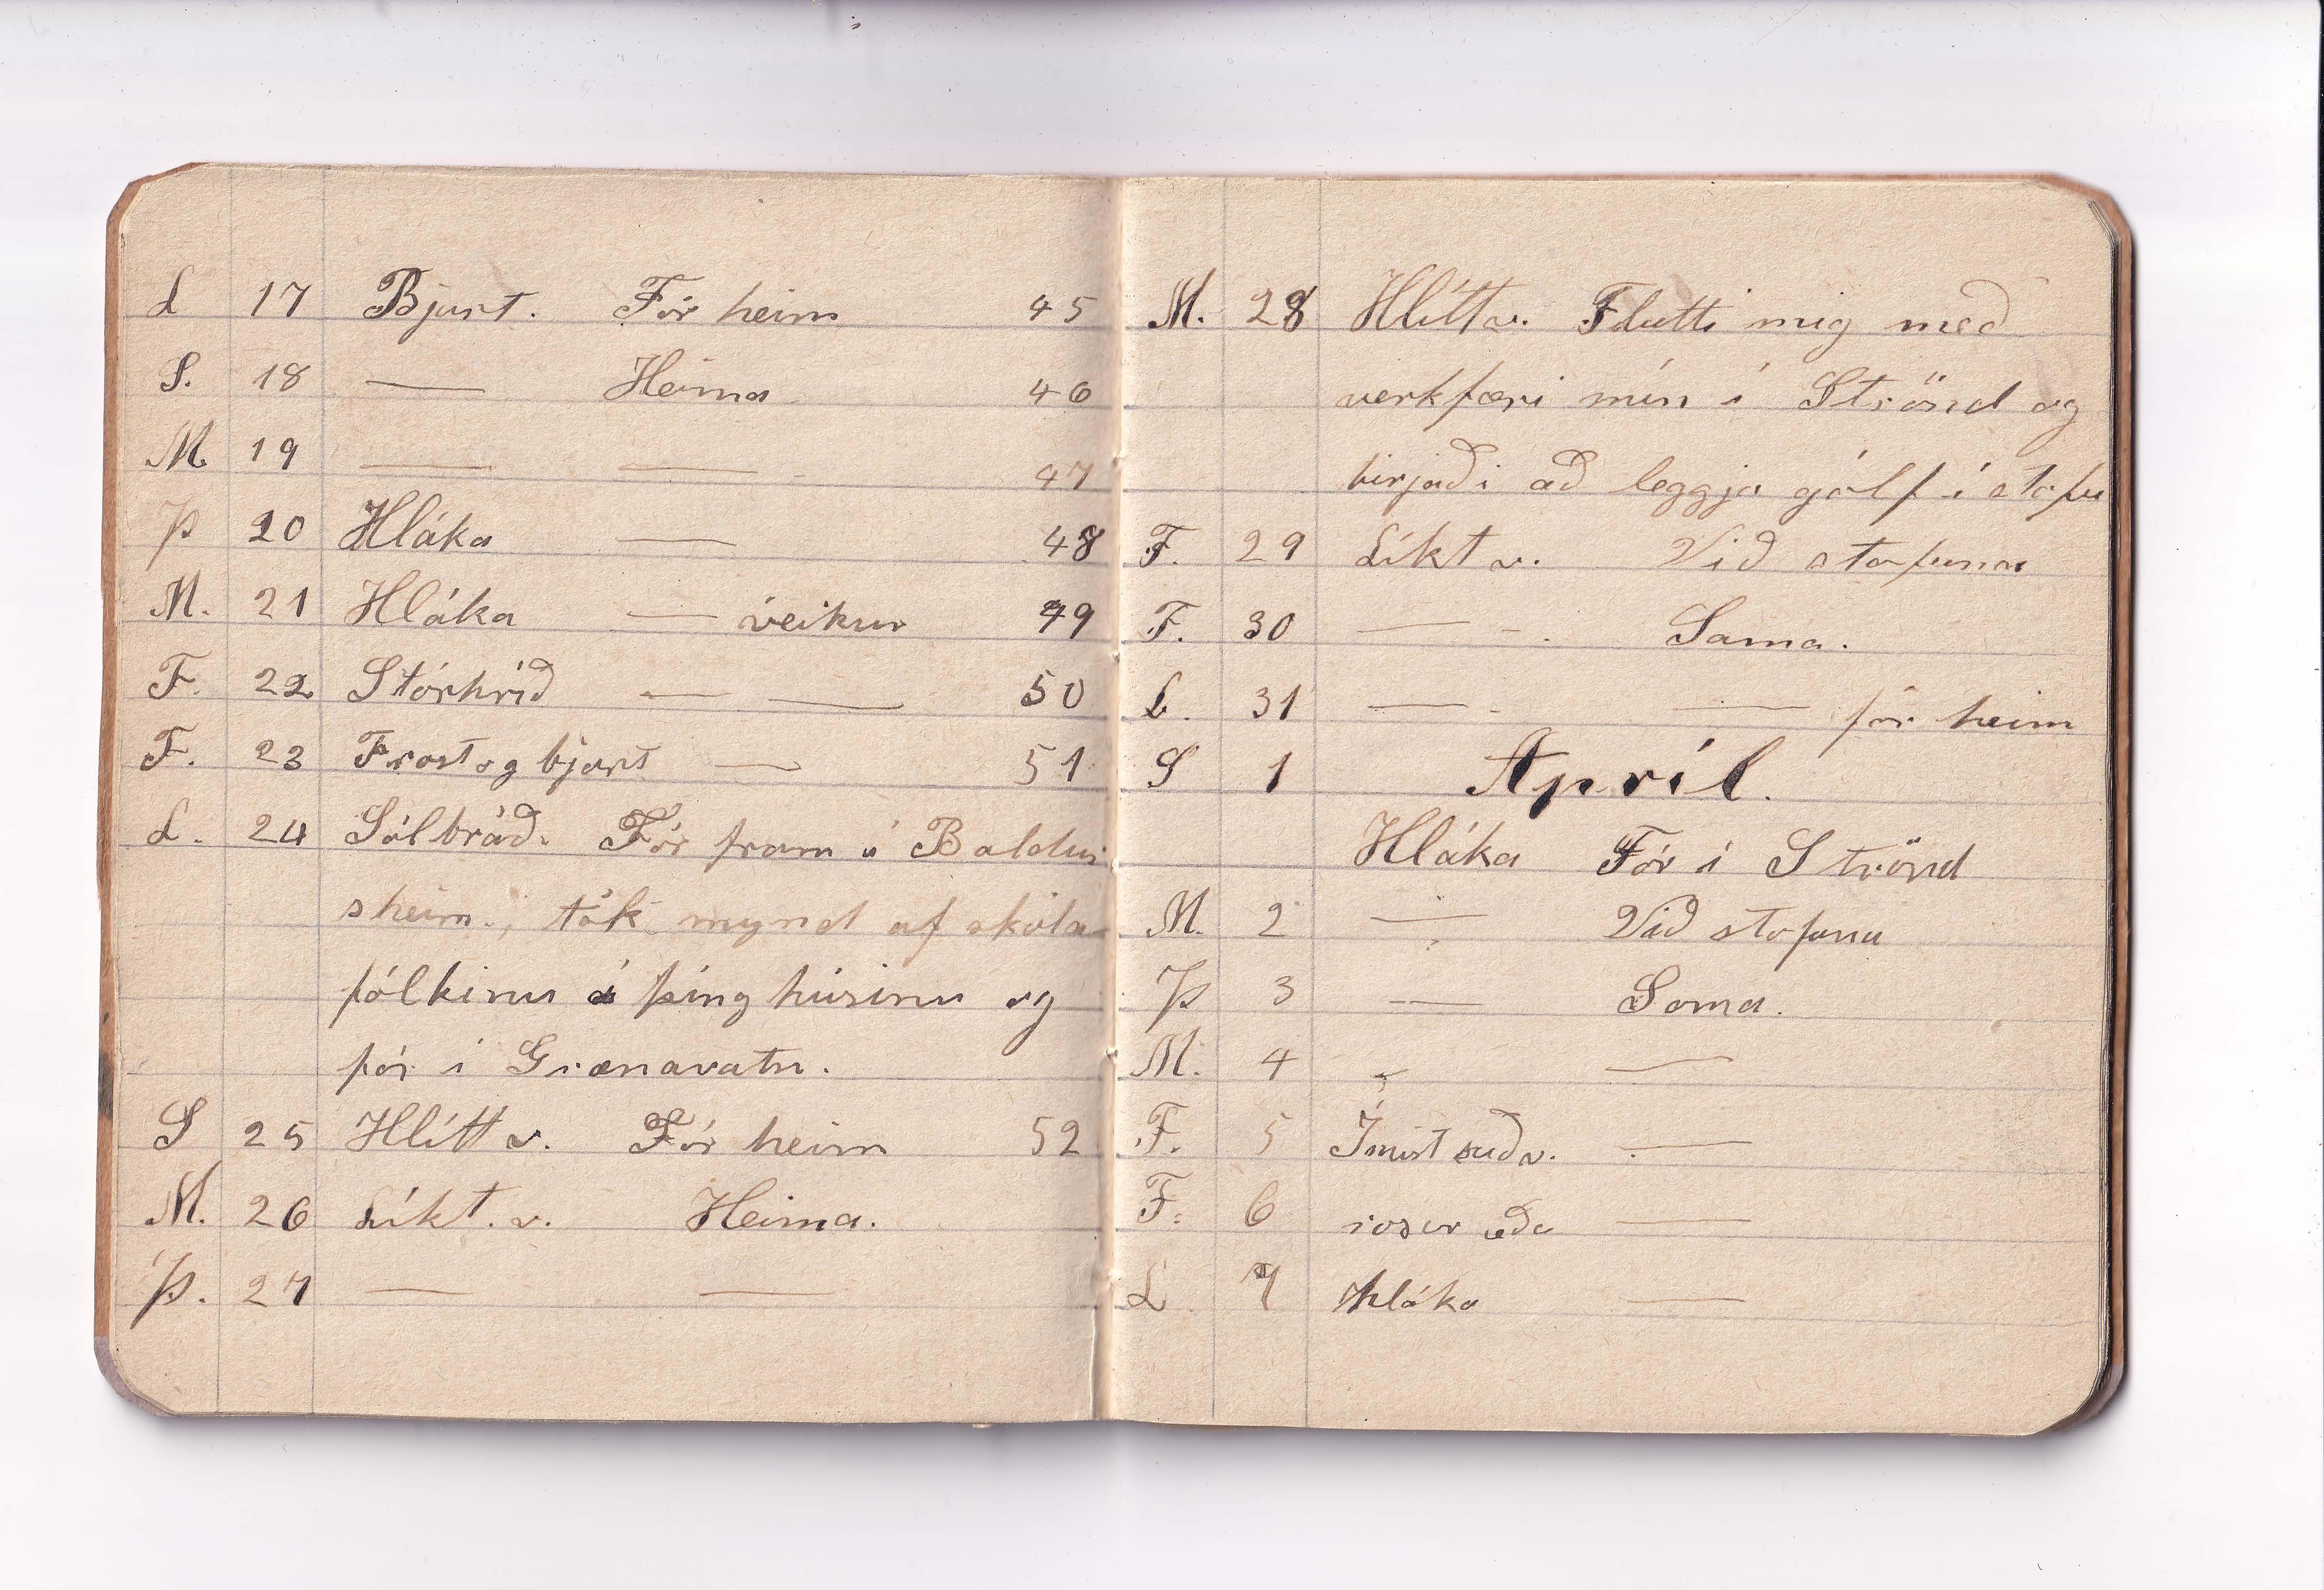 L 17 Bjart. Fór heim 45
S. 18 — Heima 46
M. 19 — — 47
Þ 20 Hláka — 48
M. 21 Hláka — veikur 49
F. 22 Stórhríð — — 50
F. 23 Frost og bjart — 51
L. 24 Sólbráð. Fór fram í Baldur
sheim., tók mynd af skóla
fólkinu á þinghúsinu og
fór í Grænavatn.
S 25 Hlítt v. Fór heim 52
M. 26 Líkt. v. Heima.
Þ. 27 — —
M. 28 Hlítt v. Flutti mig með
verkfæri mín í Strönd og
birjaði að leggja gólf í stofu
F. 29 Líkt v. Við stofuna
F. 30 — - . Sama.
L. 31 — - — fór heim
S 1 Apríl.
Hláka Fór í Strönd
M. 2 — Við stofuna
Þ 3 — Sama.
M. 4 — —
F. 5 Ímist suðv. —
F. 6 rosar eða —
L 7 hláka —